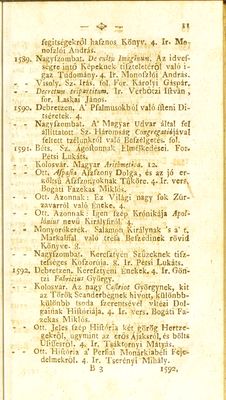 11
segítségekröl hasznos Könyv. 4. Ir. Mo-
noszlói András.
1589. Nagyszombat. De cultu Imaginum. Az idves-
ségre intö Képeknek tiszteletéröl való i-
gaz Tudomány. 4. Ir. Monoszlói András.
-- Visoly. Sz. Irás. fol. For. Károlyi Gáspár.
-- Decretum tripartitum. Ir. Verbötzi István.
for. Laskai János.
1590. Debretzen, A' Psalmusokból való Isteni Di-
tséretek. 4.
-- Nagyszombat. A' Magyar Udvar által fel
állittatott Sz. Háromság Congregatiójával
feltett tzélunkról való Beszélgetés. fol.
1591. Béts. Sz. Ágostonnak Elmélkedései. For.
Pétsi Lukáts.
-- Kolosvár. Magyar Aritmetica. 12.
-- Ott. Aspasia Aszszony Dolga, és az jó er-
kölcsü Aszszonyoknak Tüköre. 4. Ir. vers.
Bogáti Fazekas Miklós.
-- Ott. Azonnak: Ez Világi nagy sok Zür-
zavarról való Ének. 4.
-- Ott. Azonnak: Igen szép Krónikája Apol-
lónius nevü Királyfiról. 4.
-- Monyorókerék. Salamon Királynak 's a' t.
Markalfal való tréfa Beszédinek rövid
Könyve. 8.
-- Nagyszombat. Keresztyén Szüzeknek tisz-
tességes Koszorúja. 8. Ir. Pétsi Lukáts.
1592. Debretzen. Keresztyéni Énekek. 4. Ir. Gön-
tzi Fabricius György.
-- Kolosvár. Az nagy Castriot Györgynek, kit
az Török Scanderbegnek hivott, különb-
különbb tsoda szerentsével vitézi Dol-
gainak Históriája. 4. Ir. vers. Bogáti Fa-
zekas Miklós.
-- Ott. Jeles szép História két görög Hertze-
gekröl, úgymint az erös Ajaksról, és bölts
Ulissesröl. 4. Ir. Tsáktornyi Mátyás.
-- Ott. História a' Persiai Monárkiabéli Feje-
delmekröl. 4. Ir. Tserényi Mihály.
B 3 1592.